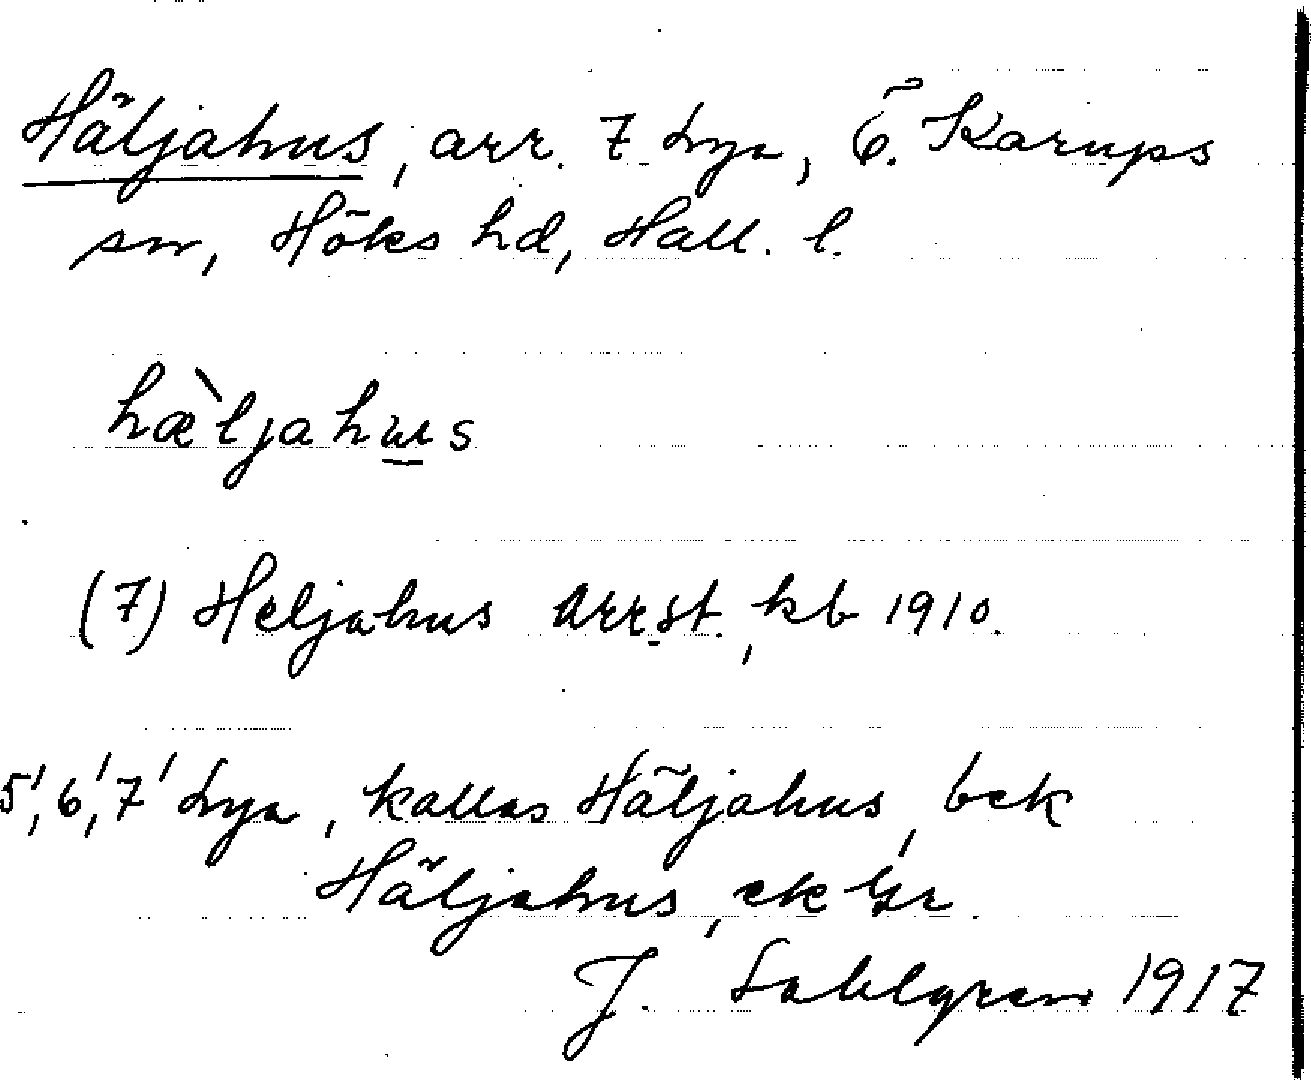 Häljahus, arr. 7 Lya, Ö. Karups
sn, Höks hd, Hall. l.
hæ̀ljahus
(7) Heljahus arrst., kb 1910.
5', 6', 7' Lya, kallas Häljahus, bek
Häljahus, ek Gr
J. Sahlgren 1917